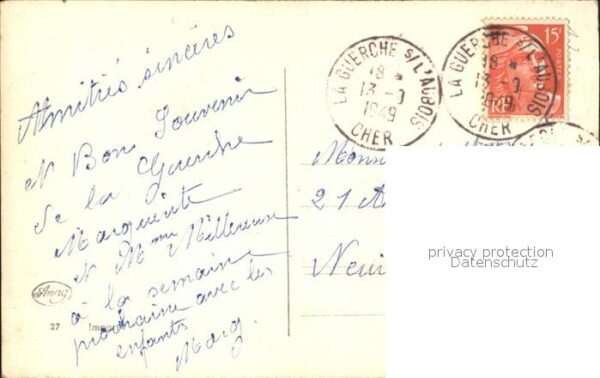 Amitiés sincères
et Bon Souvenir
de la Guerche
Marguerite
et Mme
à la semaine
prochaine avec les
enfants
Marg.
Amag
27 Impor
LA GUERCHE S/L'AUBOIS
18 *
13 - 9
1949
CHER
LA GUERCHE S/L'AUBOIS
18 *
13 - 9
1949
CHER
15F
21 A
privacy protection
Datenschutz